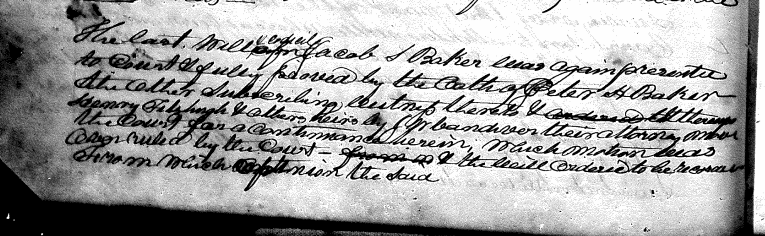 The last Will of Jacob S Baker was again presented
to Court & fully proved by the Oath of Peter H Baker
the other subscribing witness thereto &
Henry Fitzhugh & others heirs by their attorney
the Court for a continuance herein, which motion was
overruled by the Court — & the Will ordered to be
From which opinion the said